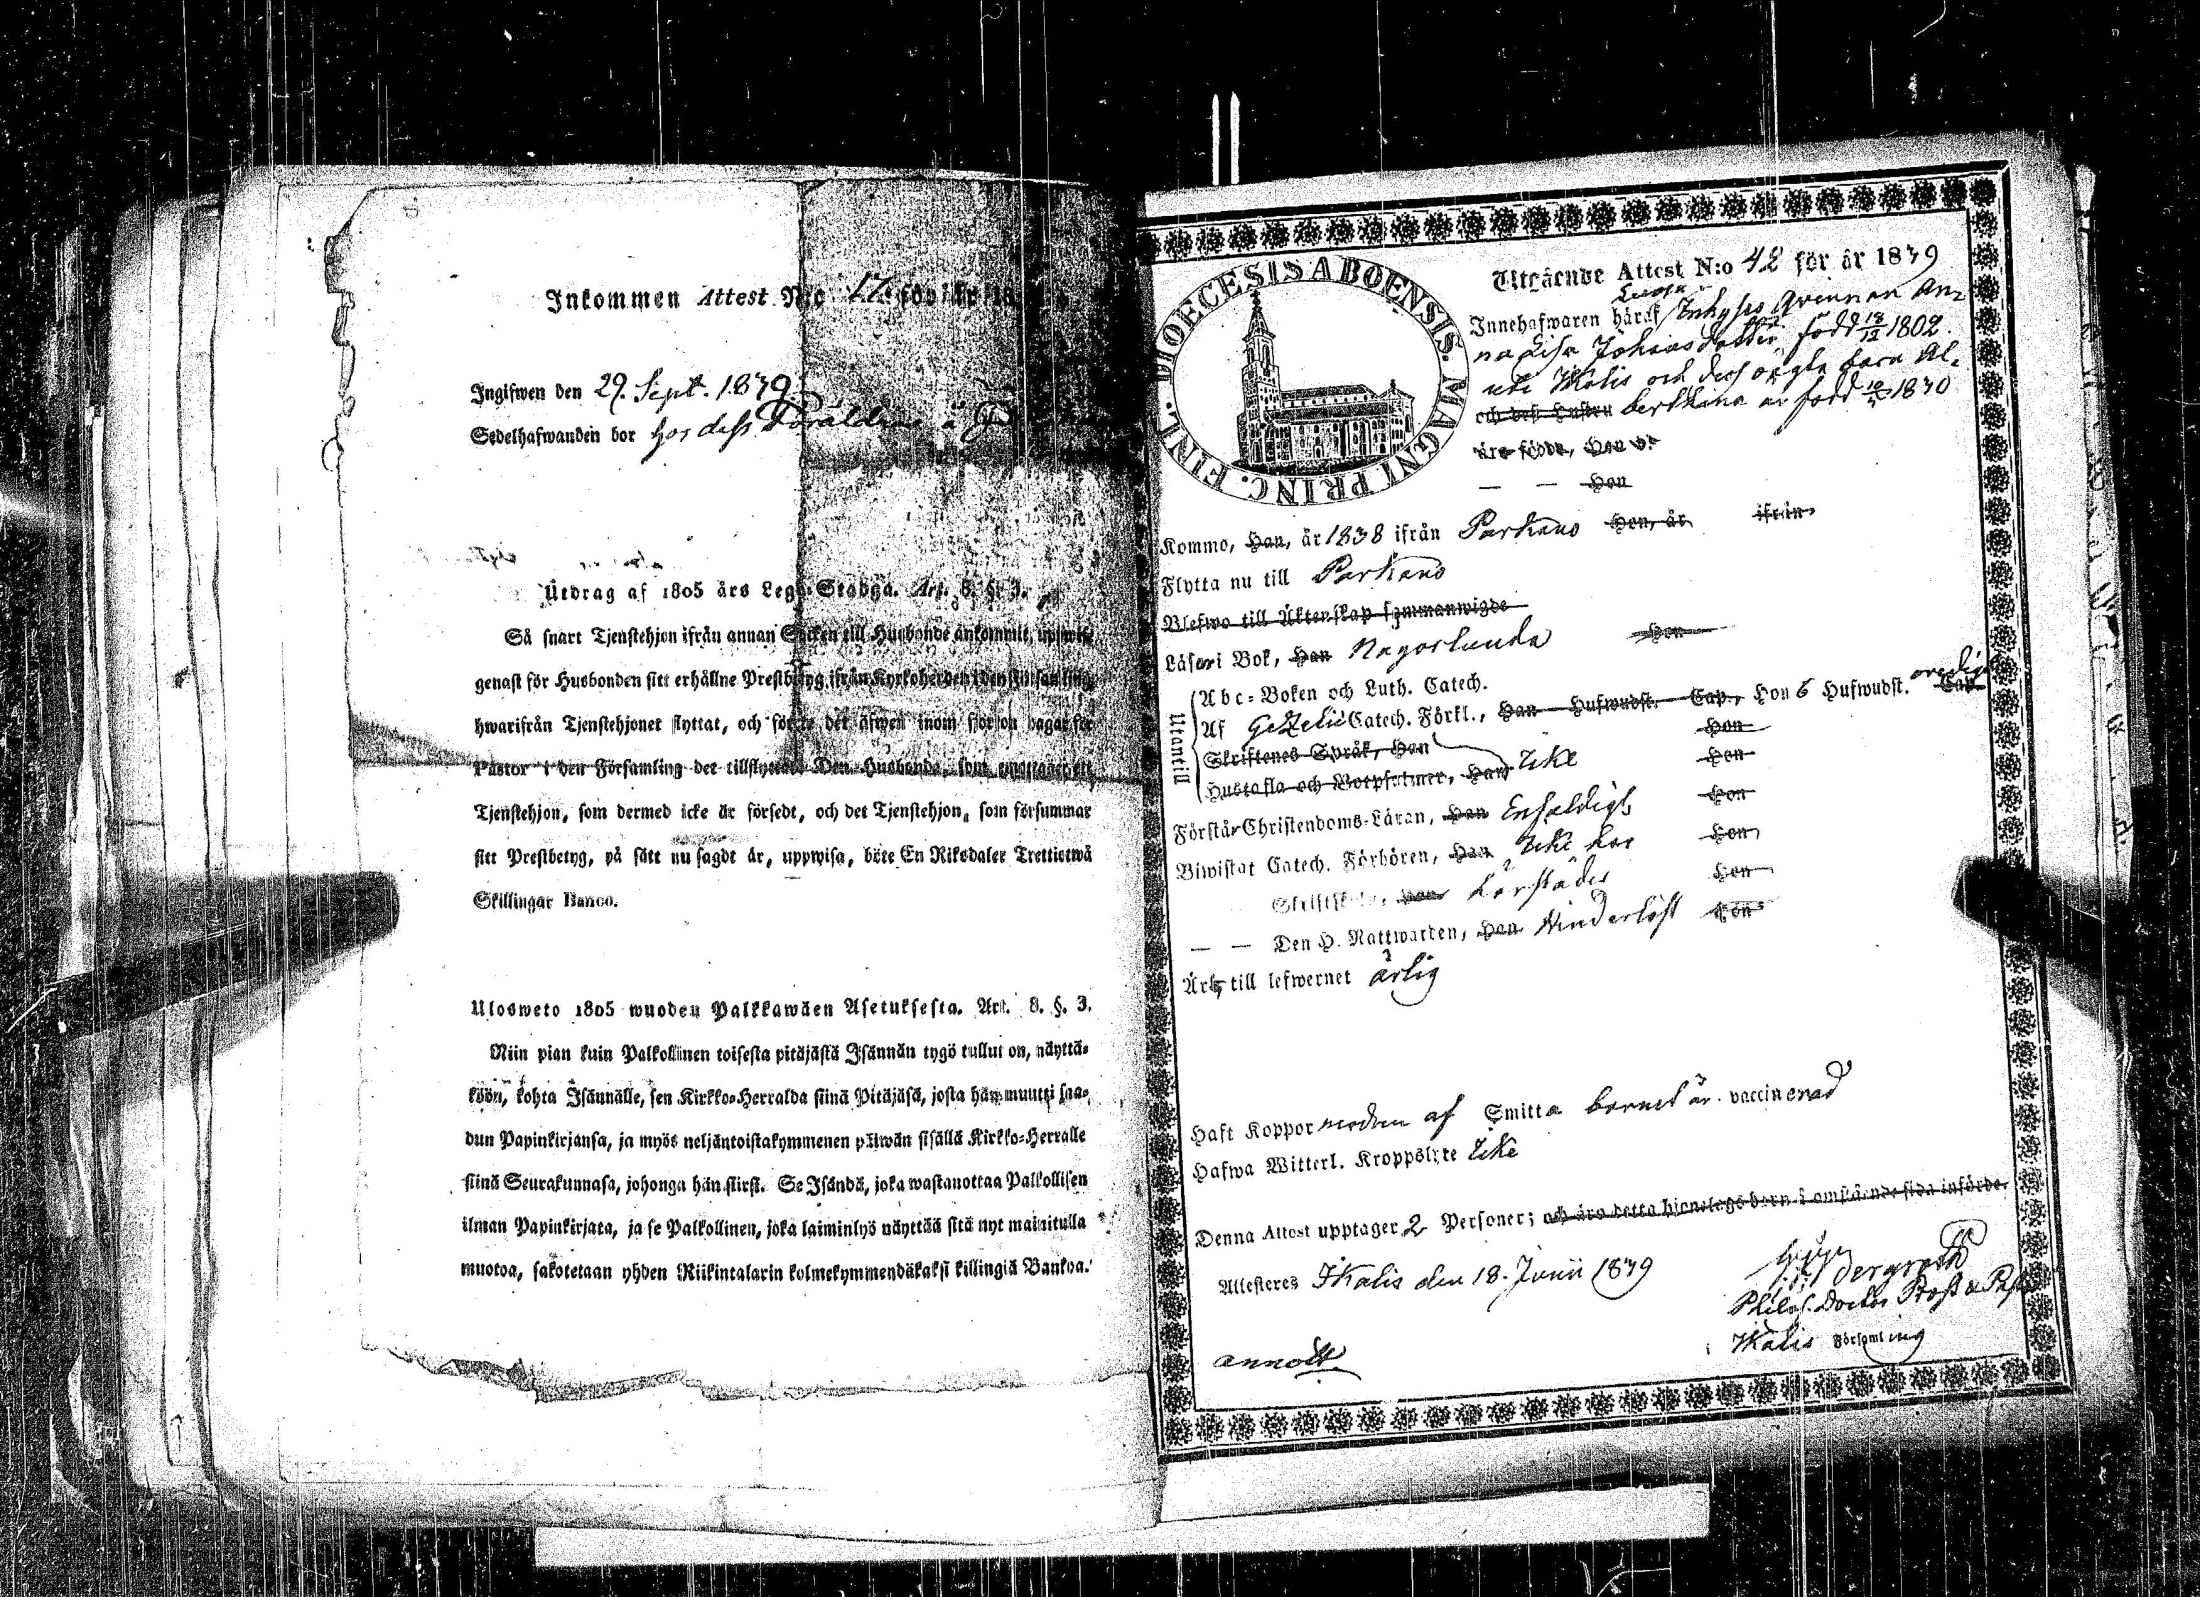 Inkommen Attest N:o 17 för år 18
Ingifwen den 29. Sept. 1839.
Sedelhafwanden bor hos dess Föräldrar å
Utdrag af 1805 års Lego-Stadga. Art. 8. §. 3.
Så snart Tjenstehjon ifrån annan Socken till Husbonde ankommit, upwise
genast för Husbonden sitt erhållne Prestbetyg ifrån Kyrkoherden i den församling,
hwarifrån Tjenstehjonet flyttat, och förete det äfwen inom fjorton dagar för
Pastor i den Församling det tillflyttat. Den Husbonde, som emottager ett
Tjenstehjon, som dermed icke är försedt, och det Tjenstehjon, som försummar
sitt Prestbetyg, på sätt nu sagdt är, uppwisa, böte En Riksdaler Trettiotwå
Skillingar Banco.
Ulosweto 1805 wuoden Palkkawäen Asetuksesta. Art. 8. §. 3.
Niin pian kuin Palkollinen toisesta pitäjästä Isännän tygö tullut on, näyttä-
köön, kohta Isännälle, sen Kirkko-Herralda siinä Pitäjäsä, josta hän muutti saa-
dun Papinkirjansa, ja myös neljäntoistakymmenen päiwän sisällä Kirkko-Herralle
siinä Seurakunnasa, johonga hän siirsi. Se Isändä, joka wastanottaa Palkollisen
ilman Papinkirjata, ja se Palkollinen, joka laiminlyö näyttää sitä nyt mainitulla
muotoa, sakotetaan yhden Riikintalarin kolmekymmendäkaksi killingiä Bankoa.
DIOECESIS ABOENSIS. MAGNI PRINC. FINL.
Utgående Attest N:o 42 för år 1839
Innehafwaren häraf Inhyses Qvinnan An-
na Lisa Johansdotter född 18/12 1802.
uti Ikalis och dess oägta barn Al-
och dess Hustru berthina är född 10/ 1830
äro födde, Han d.
— — Hon
Kommo, Han, år 1838 ifrån Parkano Hon, år ifrån
Flytta nu till Parkano
Blefwo till Äktenskap sammanwigde
Läser i Bok, Han Någorlunda Hon
Utantill
Abc-Boken och Luth. Catech.
Af Gezelii Catech. Förkl., Han Hufwudst. Cap., Hon 6 Hufwudst. oredigt Cap.
Skriftenes Språk, Han Hon
Hustafla och Botpsalmer, Han Icke Hon
Förstår Christendoms-Läran, Han Enfaldigt Hon
Biwistat Catech. Förhören, Han Icke här Hon
Skriftskolan, Han Lärstädes Hon
— — Den H. Nattwarden, Han Hinderlöst Hon
Är till lefwernet ärlig
Haft Koppor modren af Smitta barnet är vaccinerad
Hafwa Witterl. Kroppslyte Icke
Denna Attest upptager 2 Personer; och äro detta hjonelags barn å omstående sida införde.
Attesteres Ikalis den 18. Junii 1839
Bergroth
Philos. Doctor Prost & Past
Ikalis Församling
annott